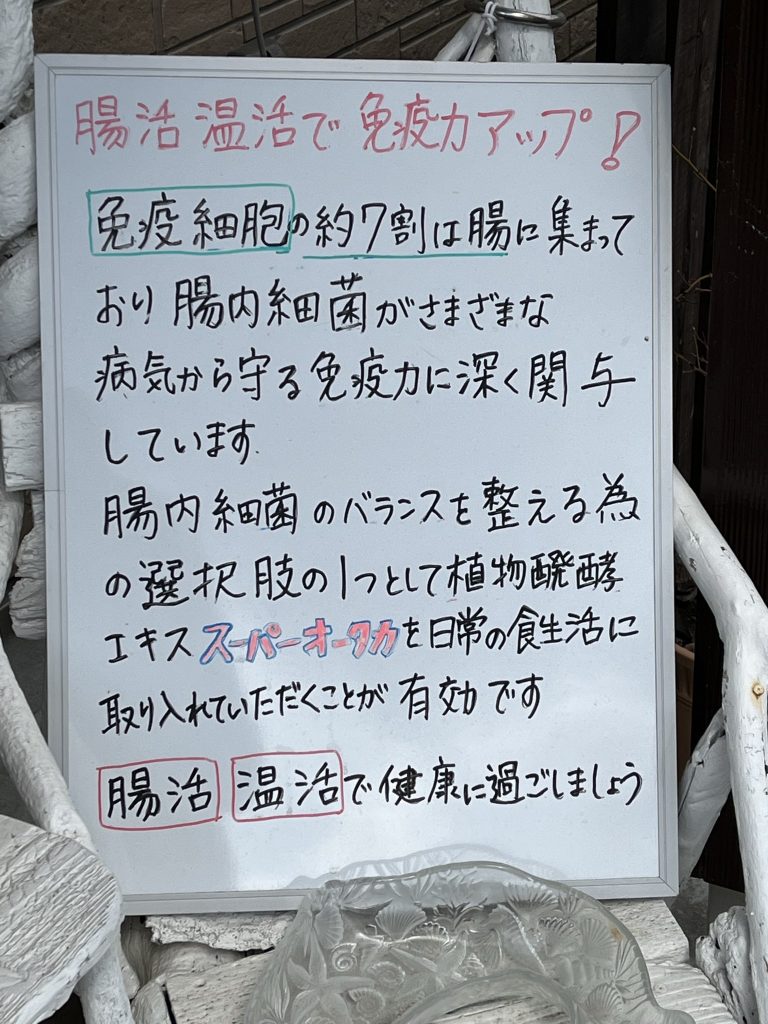 腸活 温活で 免疫力アップ!
免疫細胞の約7割は腸に集まって
おり 腸内細菌がさまざまな
病気から守る免疫力に深く関与
しています.
腸内細菌のバランスを整える為
の選択肢の1つとして植物醗酵
エキススーパーオータカを日常の食生活に
取り入れていただくことが 有効です
腸活 温活で健康に過ごしましょう